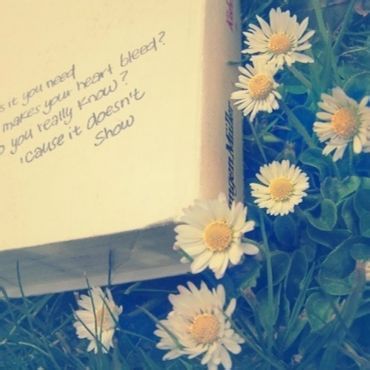 s it you need
makes your heart bleed?
o you really know?
'cause it doesn't
show